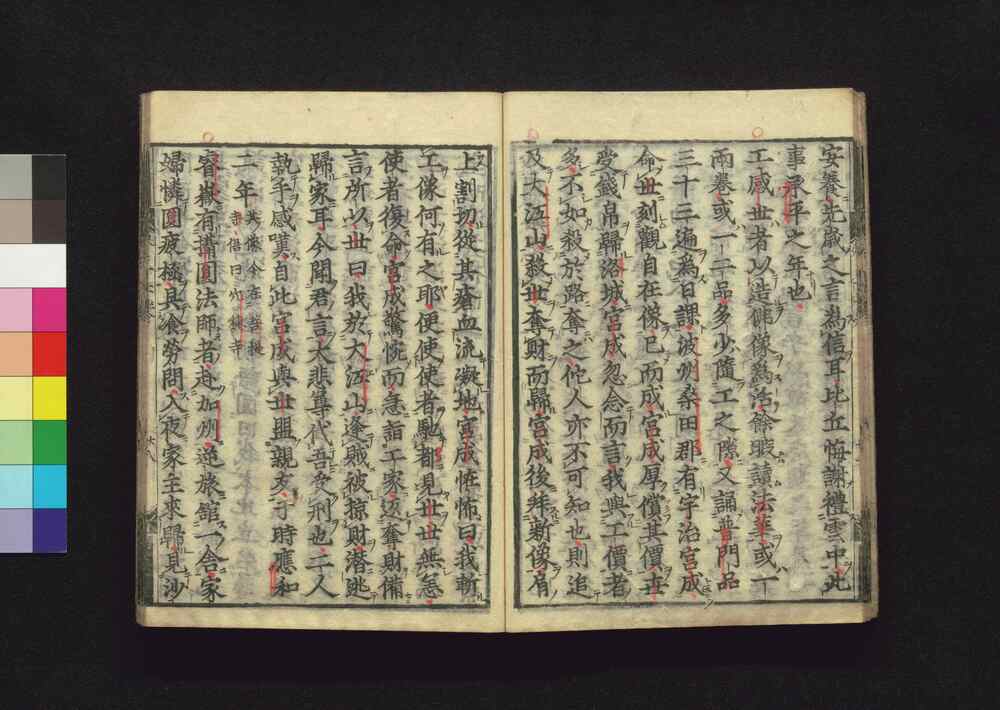 安養先蔵之言為信耳比丘悔謝禮雲中此
事承平之年也
工感世者以造佛像為活餘暇讀法華或一
兩卷或一二品多少隨工之隙又誦普門品
三十三遍為日課波州桑田郡有宇治宮成
命世刻觀自在像已而成宮成厚償其價世
受錢帛歸洛城宮成忽念而言我與工價者
多不如殺於路奪之佗人亦不可知也則追
及大江山殺世奪財而歸宮成後拜新像肩
上割切從其瘡血流凝地宮成恠怖曰我斬
工像何有之耶便使使者馳都見世世無恙
使者復命宮成驚怳而急詣工家返奪財備
言所以世曰我於大江山逢賊被掠財潛逃
歸家耳今聞君言大悲尊代吾受刑也二人
執手感嘆自此宮成與世盟親友于時應和
二年其像今在菩提寺俗曰穴穗寺
睿嶽有攝圓法師者赴加州逆旅舘一舎家
婦憐圓疲極具食勞問入夜家主來歸見沙